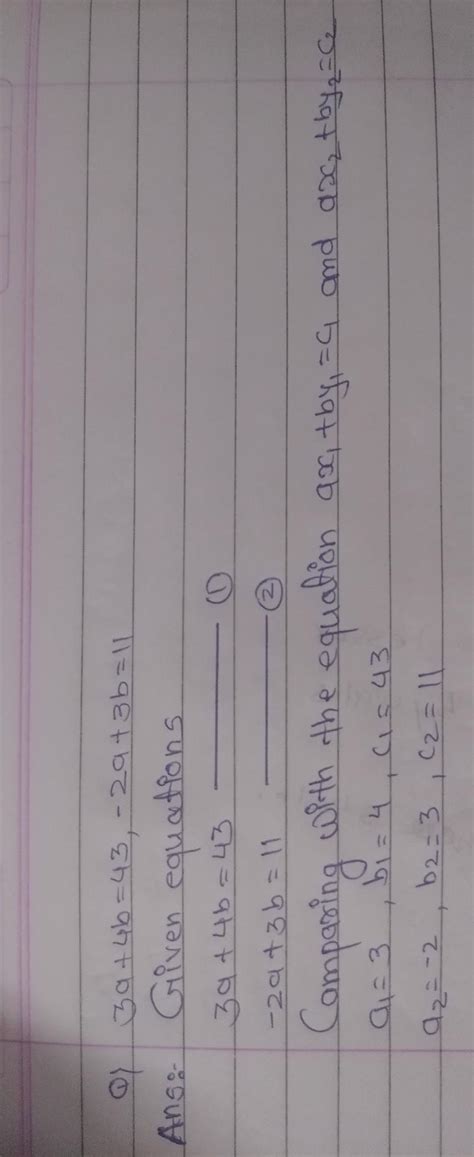 Q) 3a+4b=43, -2a+3b=11
Ans:- Given equations
3a+4b=43 ——— ①
-2a+3b=11 ——— ②
Comparing with the equation ax₁+by₁=c₁ and ax₂+by₂=c₂
a₁=3, b₁=4, c₁=43
a₂=-2, b₂=3, c₂=11